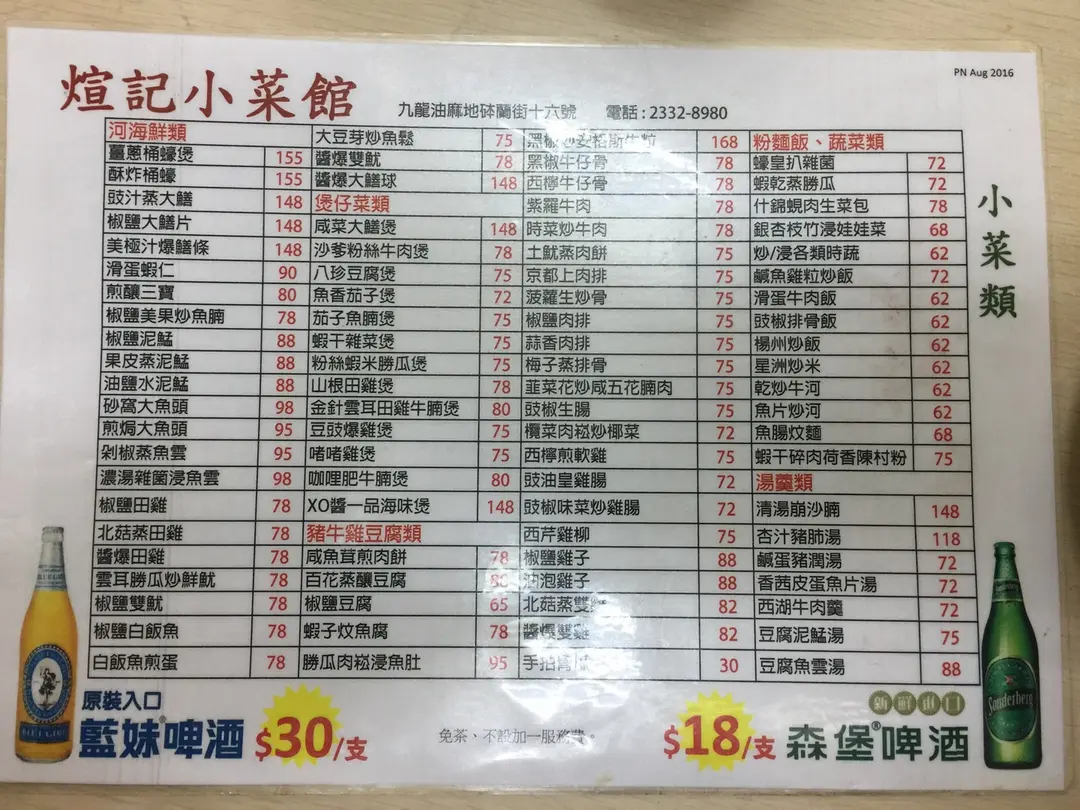 PN Aug 2016
煊記小菜館
九龍油麻地砵蘭街十六號 電話:2332-8980
小菜類
河海鮮類
薑蔥桶蠔煲 155
酥炸桶蠔 155
豉汁蒸大鱔 148
椒鹽大鱔片 148
美極汁爆鱔條 148
滑蛋蝦仁 90
煎釀三寶 80
椒鹽美果炒魚腩 78
椒鹽泥鯭 88
果皮蒸泥鯭 88
油鹽水泥鯭 88
砂窩大魚頭 98
煎焗大魚頭 95
剁椒蒸魚雲 95
濃湯雜菌浸魚雲 98
椒鹽田雞 78
北菇蒸田雞 78
醬爆田雞 78
雲耳勝瓜炒鮮魷 78
椒鹽雙魷 78
椒鹽白飯魚 78
白飯魚煎蛋 78
大豆芽炒魚鬆 75
醬爆雙魷 78
醬爆大鱔球 148
煲仔菜類
咸菜大鱔煲 148
沙爹粉絲牛肉煲 78
八珍豆腐煲 75
魚香茄子煲 72
茄子魚腩煲 75
蝦干雜菜煲 75
粉絲蝦米勝瓜煲 75
山根田雞煲 78
金針雲耳田雞牛腩煲 80
豆豉爆雞煲 75
啫啫雞煲 75
咖哩肥牛腩煲 80
XO醬一品海味煲 148
豬牛雞豆腐類
咸魚茸煎肉餅 78
百花蒸釀豆腐
椒鹽豆腐 65
蝦子炆魚腐 78
勝瓜肉崧浸魚肚 95
黑椒炒安格斯牛粒 168
黑椒牛仔骨 78
西檸牛仔骨 78
紫羅牛肉 78
時菜炒牛肉 75
土魷蒸肉餅 75
京都上肉排 75
菠蘿生炒骨 75
椒鹽肉排 75
蒜香肉排 75
梅子蒸排骨 75
韮菜花炒咸五花腩肉 75
豉椒生腸 75
欖菜肉崧炒椰菜 72
西檸煎軟雞 75
豉油皇雞腸 72
豉椒味菜炒雞腸 72
西芹雞柳 75
椒鹽雞子 88
油泡雞子 88
北菇蒸雙 82
醬爆雙雞 82
手拍青瓜 30
粉麵飯、蔬菜類
蠔皇扒雜菌 72
蝦乾蒸勝瓜 72
什錦蜆肉生菜包 78
銀杏枝竹浸娃娃菜 68
炒/浸各類時蔬 62
鹹魚雞粒炒飯 72
滑蛋牛肉飯 62
豉椒排骨飯 62
楊州炒飯 62
星洲炒米 62
乾炒牛河 62
魚片炒河 62
魚腸炆麵 68
蝦干碎肉荷香陳村粉 75
湯羹類
清湯崩沙腩 148
杏汁豬肺湯 118
鹹蛋豬潤湯 72
香茜皮蛋魚片湯 72
西湖牛肉羹 72
豆腐泥鯭湯 75
豆腐魚雲湯 88
原裝入口
藍妹®啤酒 $30/支
免茶、不設加一服務費。
$18/支 森堡®啤酒
Sonderberg